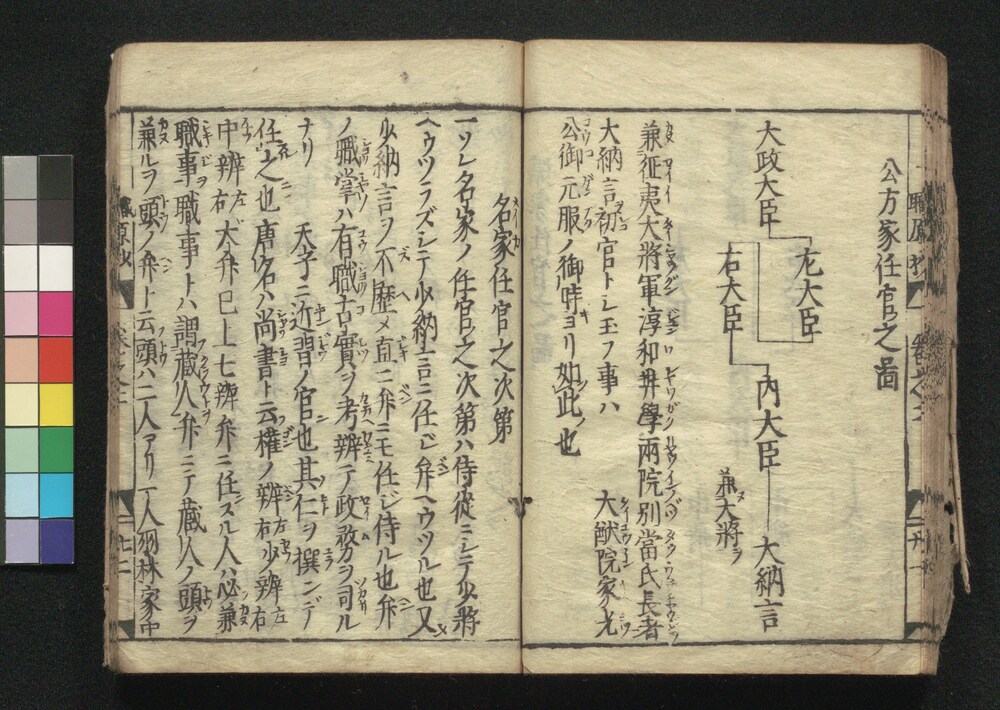 公方家任官之圖
大政大臣
左大臣
右大臣
內大臣
兼大將ヲ
大納言
兼征夷大將軍淳和弉學兩院別當氏長者
大納言初官トシ玉フ事ハ
大猷院家光
公御元服ノ御時ヨリ如此ノ也
名家任官之次第
一ソレ名家ノ任官之次第ハ侍從ニシテ少將
ヘウツラズシテ少納言ニ任ジ弁ヘウツル也又
少納言ヲ不歷メ直ニ弁ニモ任ジ侍ル也弁
ノ職掌ハ有職古實ヲ考辨テ政務ヲ司ル
ナリ
天子ニ近習ノ官也其仁ヲ撰ンデ
任之也唐名ハ尚書ト云權ノ辨左右少辨左右
中辨左右大弁巳上七辨弁ニ任ズル人ハ必兼
職事ヲ職事トハ謂藏人弁ニテ藏人ノ頭ヲ
兼ルヲ頭ノ弁ト云頭ハ二人アリ一人羽林家ノ中